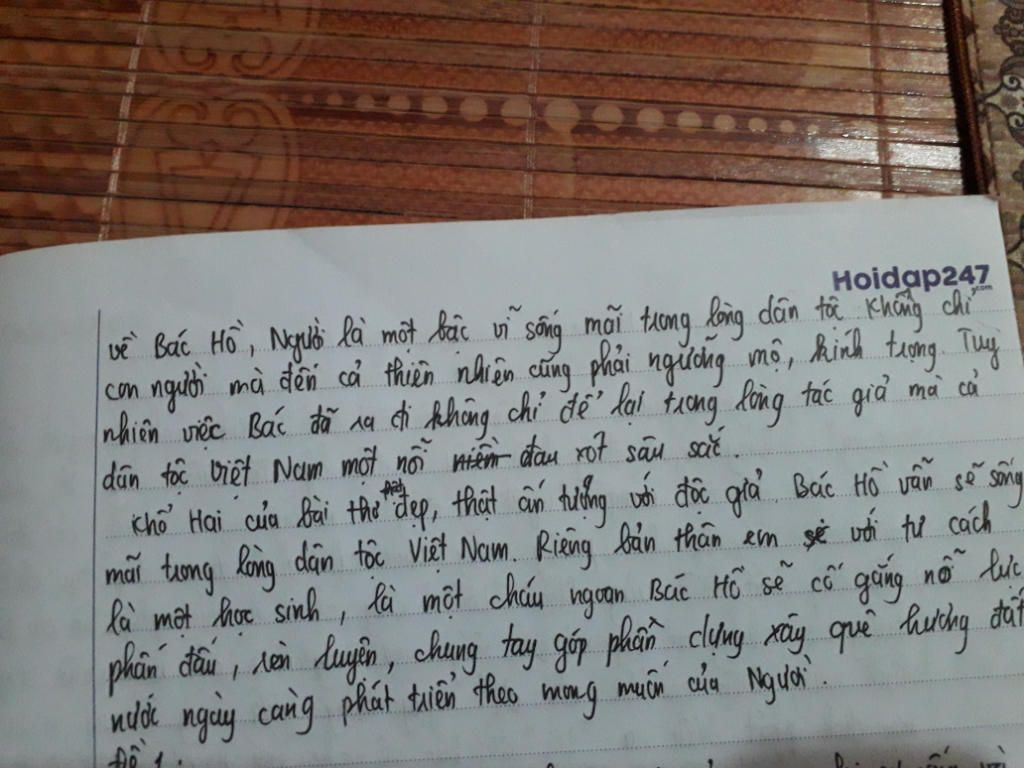 Hoidap247
.com
về Bác Hồ, Người là một bậc vĩ sống mãi trong lòng dân tộc không chỉ
con người mà đến cả thiên nhiên cũng phải ngưỡng mộ, kính trọng. Tuy
nhiên việc Bác đã ra đi không chỉ để lại trong lòng tác giả mà cả
dân tộc Việt Nam một nỗi niềm đau xót sâu sắc.
Khổ Hai của bài thơ thật đẹp, thật ấn tượng với độc giả. Bác Hồ vẫn sẽ sống
mãi trong lòng dân tộc Việt Nam. Riêng bản thân em sẽ với tư cách
là một học sinh, là một cháu ngoan Bác Hồ sẽ cố gắng nỗ lực
phấn đấu, rèn luyện, chung tay góp phần dựng xây quê hương đất
nước ngày càng phát triển theo mong muốn của Người.
Đề 1: